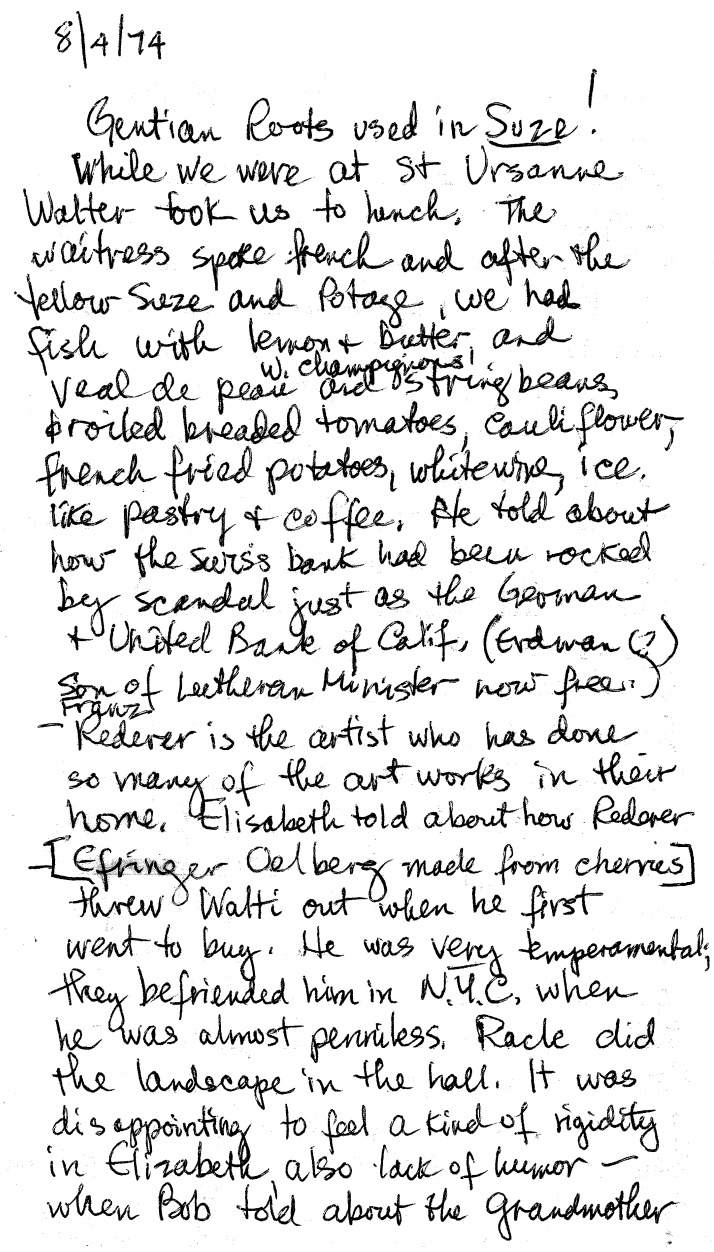 8/4/74
Gentian Roots used in Suze!
While we were at St Ursanne
Walter took us to lunch. The
waitress spoke french and after the
Yellow Suze and Potage, we had
fish with lemon + butter, and
w. champignons,
Veal de peau and string beans,
broiled breaded tomatoes, cauliflower,
french fried potatoes, white wine, ice.
like pastry + coffee. He told about
how the swiss bank had been rocked
by scandal just as the German
+ United Bank of Calif. (Erdman (?)
Son of Lutheran Minister now free.)
Franz
– Rederer is the artist who has done
so many of the art works in their
home. Elisabeth told about how Rederer
–[Efringer Oelberg made from cherries]
threw Walti out when he first
went to buy. He was very temperamental;
they befriended him in N.Y.C. when
he was almost penniless. Racle did
the landscape in the hall. It was
disappointing to feel a kind of rigidity
in Elizabeth, also lack of humor –
when Bob told about the Grandmother